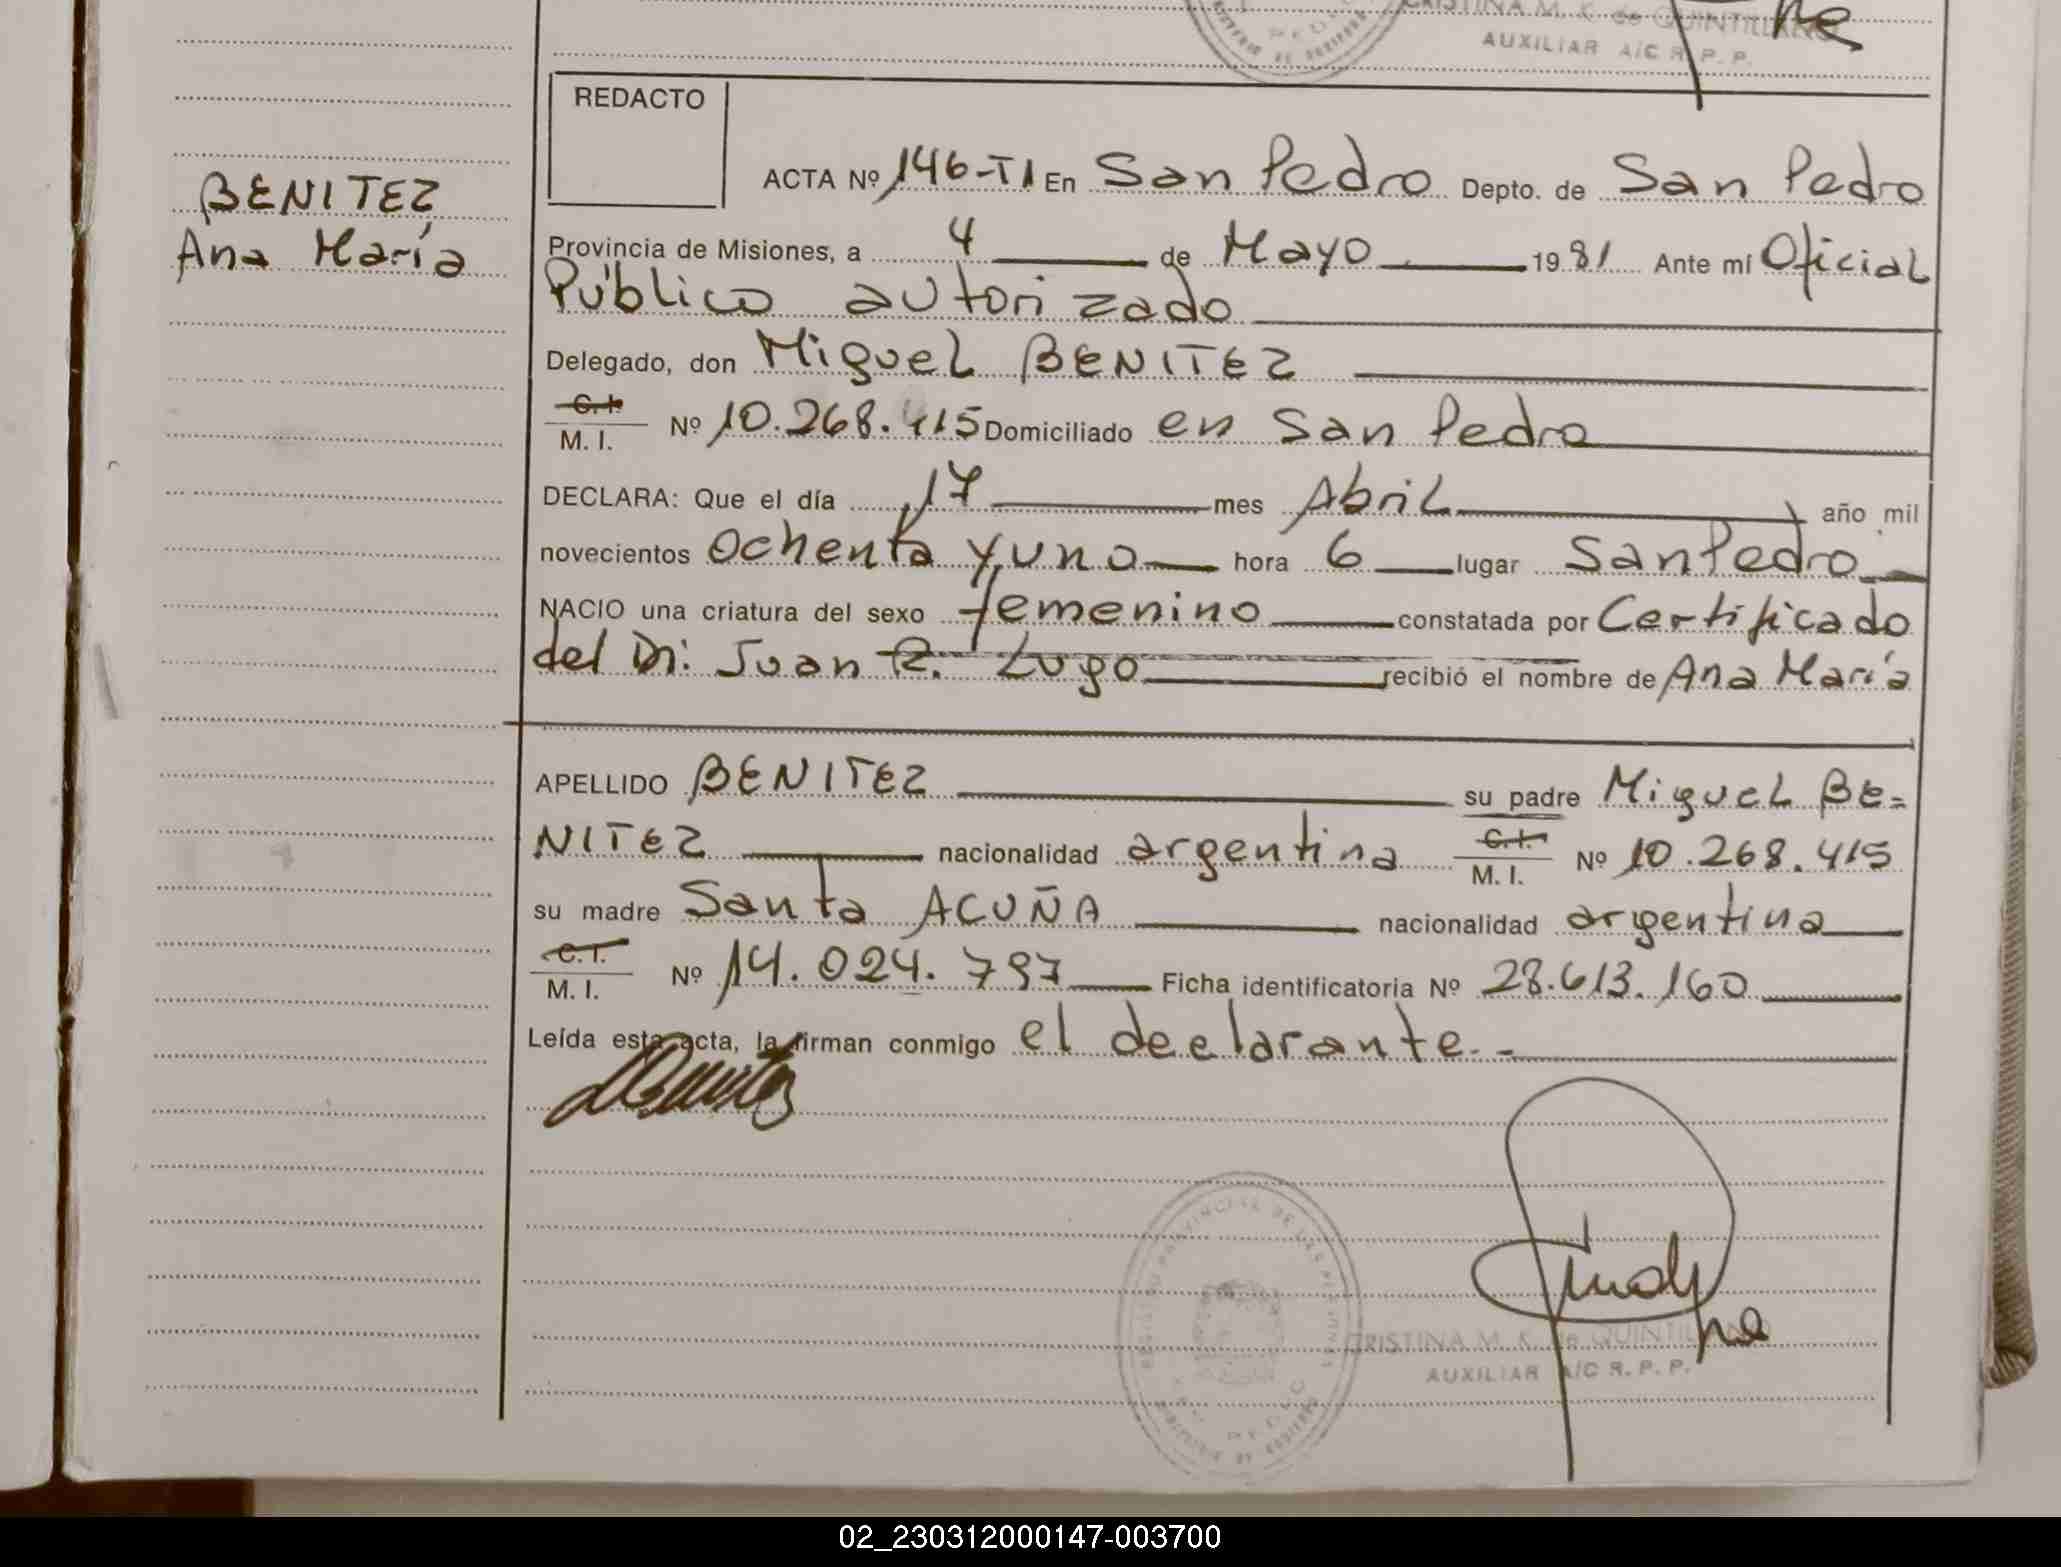 CRISTINA M. K. de QUINTILLANO
AUXILIAR A/C R. P. P.
REDACTO
BENITEZ
Ana María
ACTA Nº 146-T1 En San Pedro Depto. de San Pedro
Provincia de Misiones, a 4 de Mayo 1981 Ante mí Oficial
Público autorizado
Delegado, don Miguel BENITEZ
C. I.
M. I. Nº 10.268.415 Domiciliado en San Pedro
DECLARA: Que el día 17 mes Abril año mil
novecientos Ochenta y uno hora 6 lugar San Pedro
NACIO una criatura del sexo femenino constatada por Certificado
del Dr: Juan R. Lugo recibió el nombre de Ana María
APELLIDO BENITEZ su padre Miguel BE-
NITEZ nacionalidad argentina C. I. M. I. Nº 10.268.415
su madre Santa ACUÑA nacionalidad argentina
C. I.
M. I. Nº 14.024.797 Ficha identificatoria Nº 28.613.160
Leída esta acta, la firman conmigo el declarante.-
REGISTRO PROVINCIAL DE LAS PERSONAS
CRISTINA M. K. de QUINTILLANO
AUXILIAR A/C R. P. P.
02_230312000147-003700